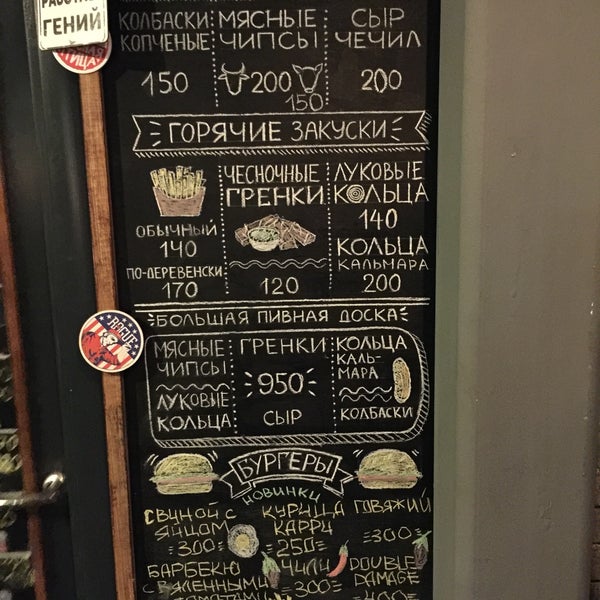 РАБОТАЕТ
ГЕНИЙ
ПТИЦА
КОЛБАСКИ
КОПЧЕНЫЕ
150
МЯСНЫЕ
ЧИПСЫ
200
150
СЫР
ЧЕЧИЛ
200
ГОРЯЧИЕ ЗАКУСКИ
ОБЫЧНЫЙ
140
ПО-ДЕРЕВЕНСКИ
170
ЧЕСНОЧНЫЕ
ГРЕНКИ
120
ЛУКОВЫЕ
КОЛЬЦА
140
КОЛЬЦА
КАЛЬМАРА
200
БОЛЬШАЯ ПИВНАЯ ДОСКА
ROGUE
МЯСНЫЕ
ЧИПСЫ
ЛУКОВЫЕ
КОЛЬЦА
ГРЕНКИ
950
СЫР
КОЛЬЦА
КАЛЬ-
МАРА
КОЛБАСКИ
БУРГЕРЫ
НОВИНКИ
СВИНОЙ С
ЯЙЦОМ
300
КУРИЦА
КАРРИ
250
ГОВЯЖИЙ
300
БАРБЕКЮ
С ВЯЛЕННЫМИ
ТОМАТАМИ
ЧИЛИ
300
DOUBLE
DAMAGE
400